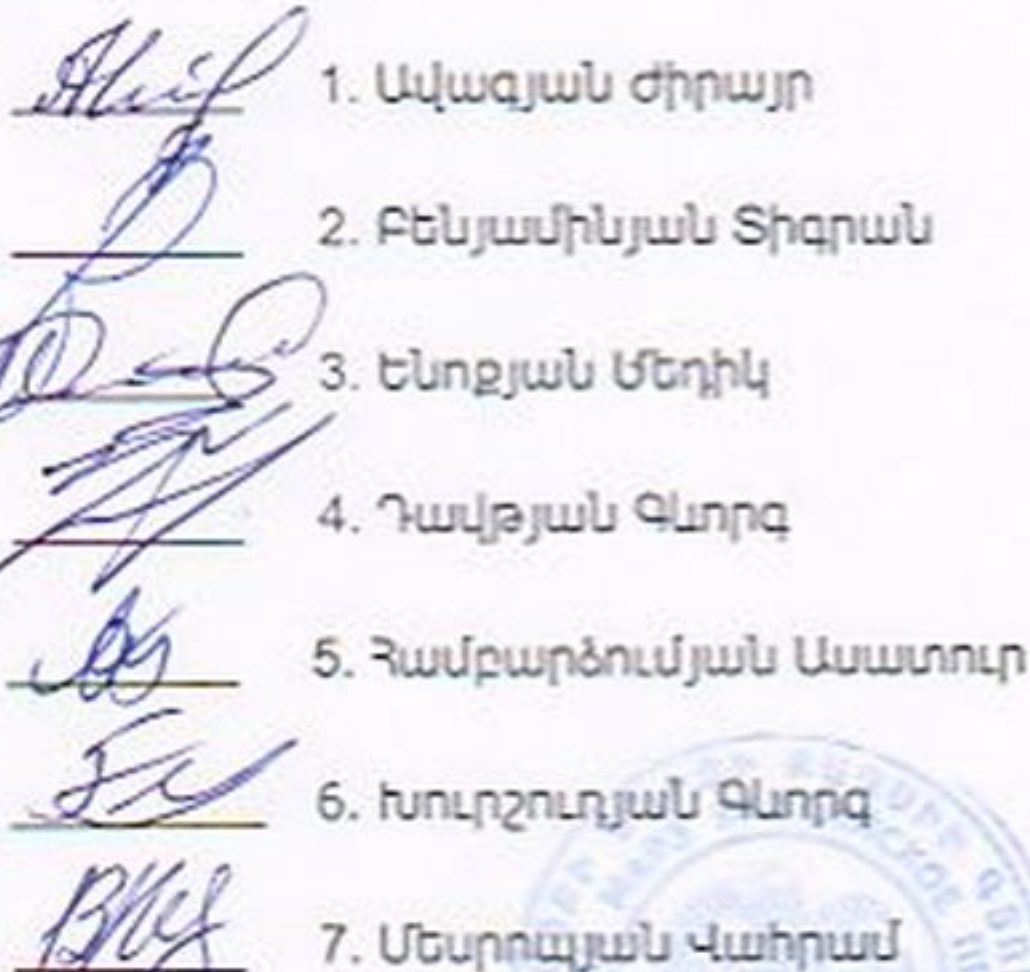 1. Ավագյան Ժիրայր
2. Բենյամինյան Տիգրան
3. Ենոքյան Մեղիկ
4. Դավթյան Գևորգ
5. Համբարձումյան Ասատուր
6. Խուրշուդյան Գևորգ
7. Մեսրոպյան Վահրամ